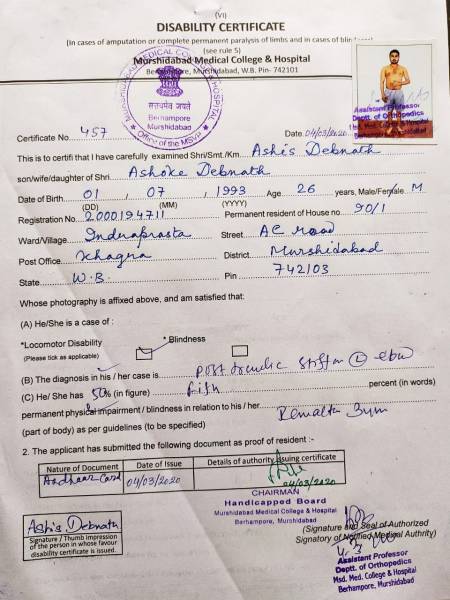 (VI)
DISABILITY CERTIFICATE
(In cases of amputation or complete permanent paralysis of limbs and in cases of
(see rule 5)
Murshidabad Medical College & Hospital
Berhampore, Murshidabad, W.B. Pin- 742101
MURSHIDABAD MEDICAL COLLEGE & HOSPITAL
सत्यमेव जयते
Berhampore
Murshidabad
Office of the MSVP
Assistant Professor
Deptt. of Orthopedics
Msd. Med. College & Hospital
Berhampore, Murshidabad
Certificate No. 457 Date. 04/03/2020
This is to certif that I have carefully examined Shri/Smt./Km Ashis Debnath
son/wife/daughter of Shri Ashoke Debnath
Date of Birth 01 , 07 , 1993 Age 26 years, Male/Female M
(DD) (MM) (YYYY)
Registration No. 2000194711 Permanent resident of House no 90/1
Ward/Village Indraprasta Street AC Road
Post Office Khagra District Murshidabad
State W.B. Pin 742103
Whose photography is affixed above, and am satisfied that:
(A) He/She is a case of :
*Locomotor Disability * Blindness
(Please tick as applicable)
(B) The diagnosis in his / her case is
(C) He/ She has 50% (in figure) fifty percent (in words)
permanent physical impairment / blindness in relation to his / her
(part of body) as per guidelines (to be specified)
2. The applicant has submitted the following document as proof of resident :-
Nature of Document Date of Issue Details of authority issuing certificate
Aadhaar Card 04/03/2020 04/03/2020
CHAIRMAN
Handicapped Board
Murshidabad Medical College & Hospital
Berhampore, Murshidabad
Ashis Debnath
Signature / Thumb impression
of the person in whose favour
disability certificate is issued.
(Signature and Seal of Authorized
Signatory of Notified Medical Authrity)
Assistant Professor
Deptt. of Orthopedics
Msd. Med. College & Hospital
Berhampore, Murshidabad